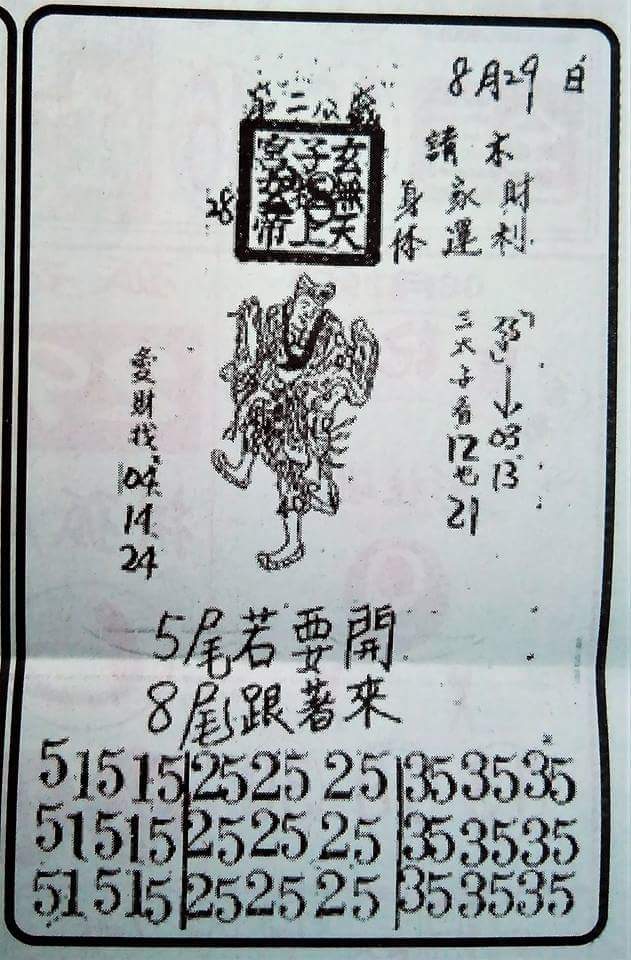 8月29日
第二公
玄無天
子 上
宮 帝
28
木 財利
請 家運
身体
↓
03
13
三太子看
12也
21
愛財找
04
14
24
5尾若要開
8尾跟著來
5 15 15 25 25 25 35 35 35
5 15 15 25 25 25 35 35 35
5 15 15 25 25 25 35 35 35